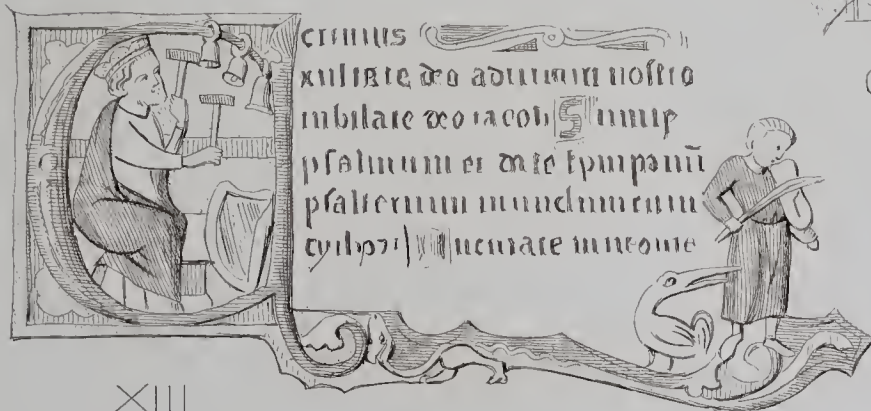 xultate deo adiutori nostro
iubilate deo iacob Sumite
psalmum et date tympanū
psalterium iucundum cum
ucinate in neome
XIII